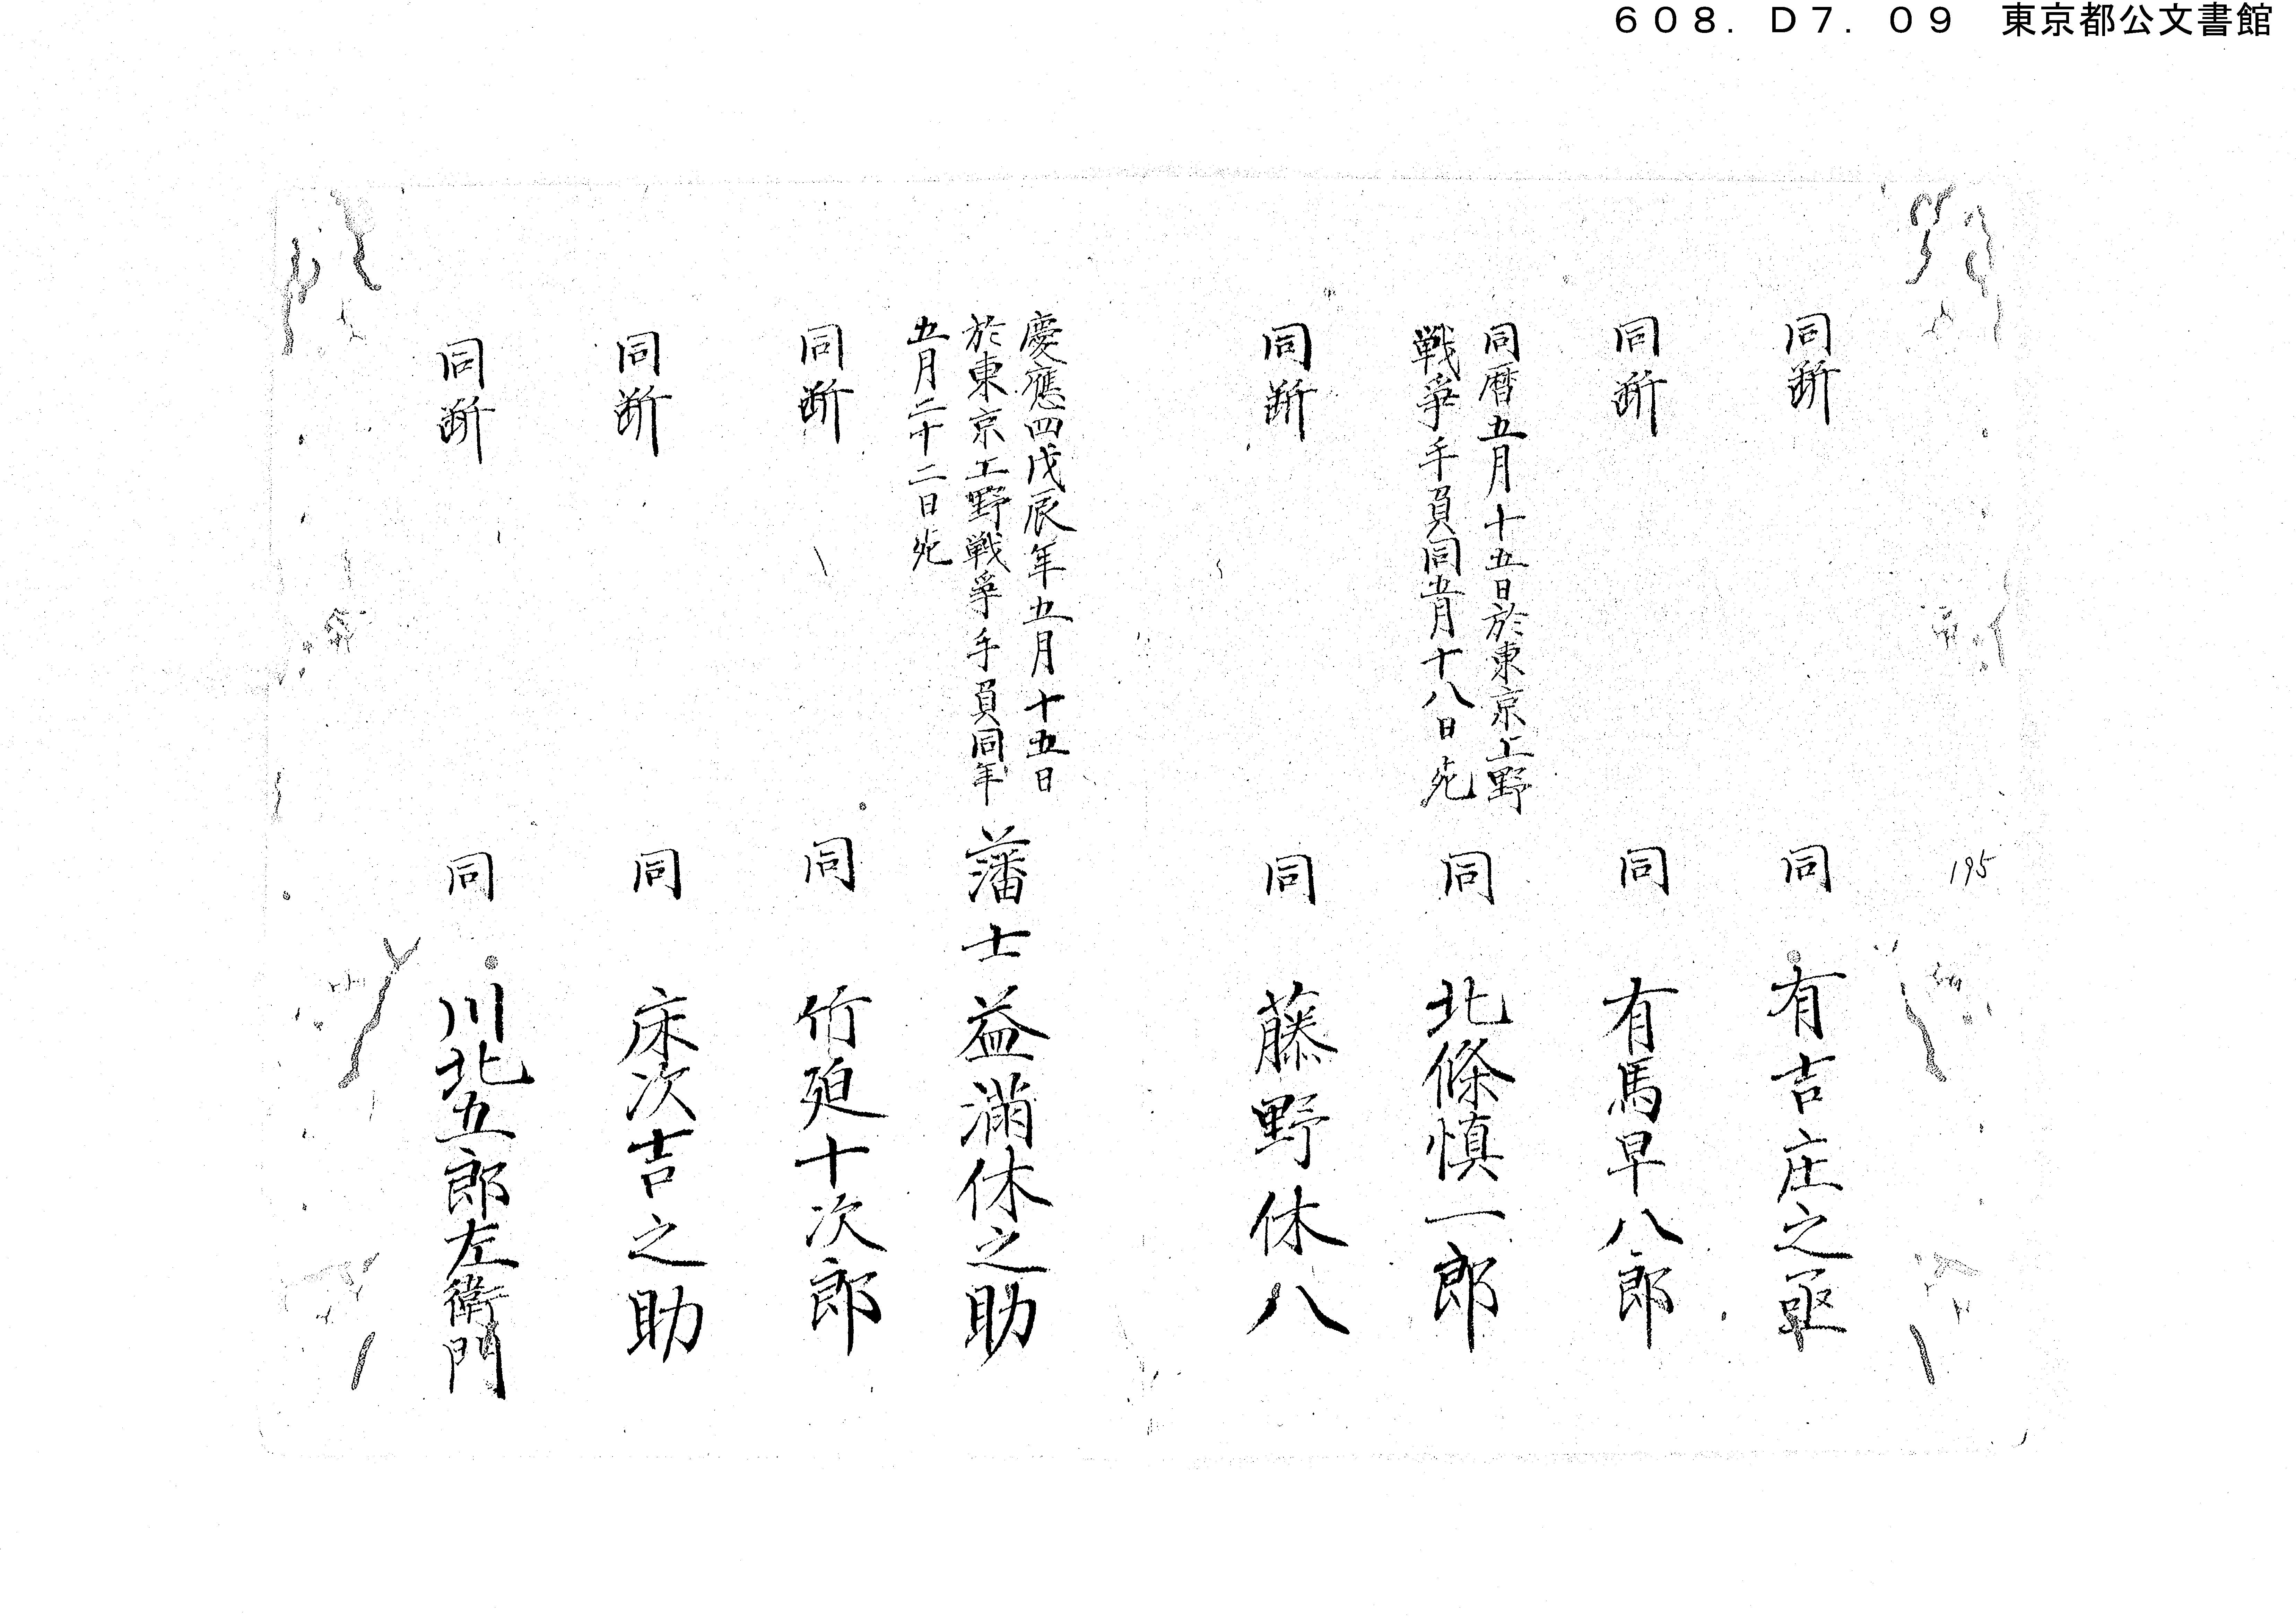 608. D7. 09 東京都公文書館
195
同断
同 有吉庄之亟
同断
同 有馬早八郎
同暦五月十五日於東京上野
戦争手負同五月十八日死
同 北條慎一郎
同断
同 藤野休八
慶應四戊辰年五月十五日
於東京上野戦争手負同年
五月二十二日死
藩士 益満休之助
同断
同 竹迫十次郎
同断
同 床次吉之助
同断
同 川北五郎左衛門